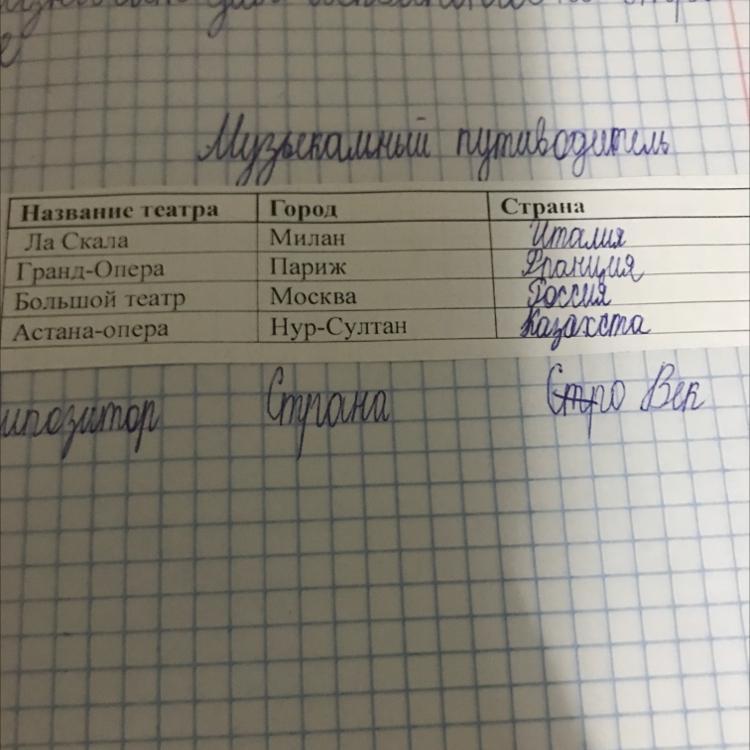 Музыкальный путиводитель
Название театра Город Страна
Ла Скала Милан Италия
Гранд-Опера Париж Франция
Большой театр Москва Россия
Астана-опера Нур-Султан Казахста
мпозитор Страна Стро Век